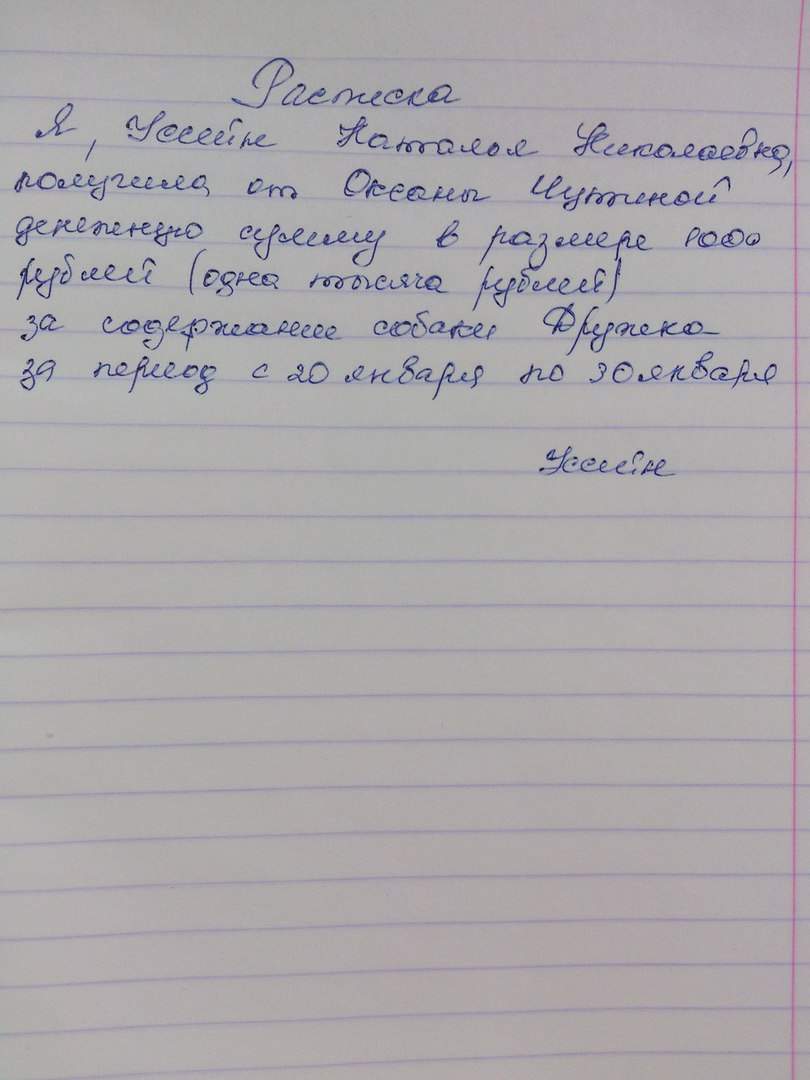 Расписка
Я, Усейн Наталья Николаевна,
получила от Оксаны Чутиной
денежную сумму в размере 1000
рублей (одна тысяча рублей)
за содержание собаки Дружка
за период с 20 января по 30 января
Усейн